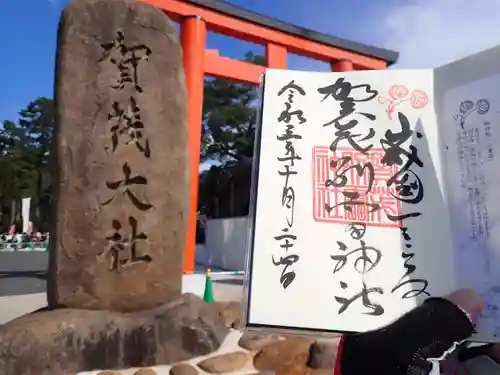 賀茂大社
山城國一之宮
賀茂別雷神社
令和三年十月二十四日